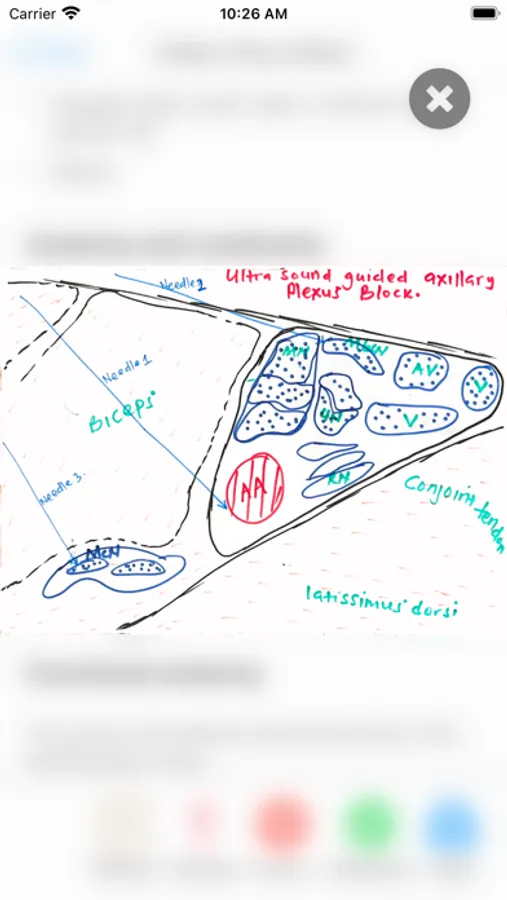 Carrier
10:26 AM
Ultra sound guided axillary
Plexus Block.
Needle 2
Needle 1
Biceps
Needle 3.
MN
AV
V
V
UN
RN
AA
McN
Conjoint
tendon
latissimus dorsi